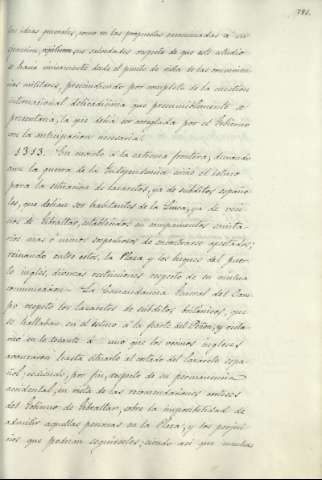 781.
las ideas generales, como en las propuestas encaminadas à su
ejecucion,
se hacia unicamente desde el punto de vista de las convenien-
cias militares, prescindiendo por completo de la cuestion
internacional delicadisima que presumiblemente se
presentaria, la que debia ser arreglada por el Gobierno
con la anticipacion necesaria.
1313. En cuanto à la estrema frontera, durante
aun la guerra de la Independencia sirvió el
para la situacion de lazaretos, ya de súbditos españo-
les, que debian ser habitantes de la Linea, ya de veci-
nos de Gibraltar, establecidos en campamentos sanita-
rios mas o menos sospechosos de encontrarse apestados;
reinando entre estos, la Plaza y los buques del puer-
to inglés, diversas restricciones respecto de su mutua
comunicacion. La Comandancia General del Cam-
po respetó los lazaretos de súbditos britanicos, que
se hallaban en el à la parte del Peñon; y
en lo tocante à uno que los vecinos ingleses
hasta situarlo al costado del lazareto espa-
ñol, por fin, respecto de su permanencia
accidental, en vista de las recomendaciones
del Gobierno de Gibraltar, sobre la imposibilidad de
admitir aquellas personas en la Plaza, y los perjui-
cios que podrian seguirseles; siendo asi que muchas